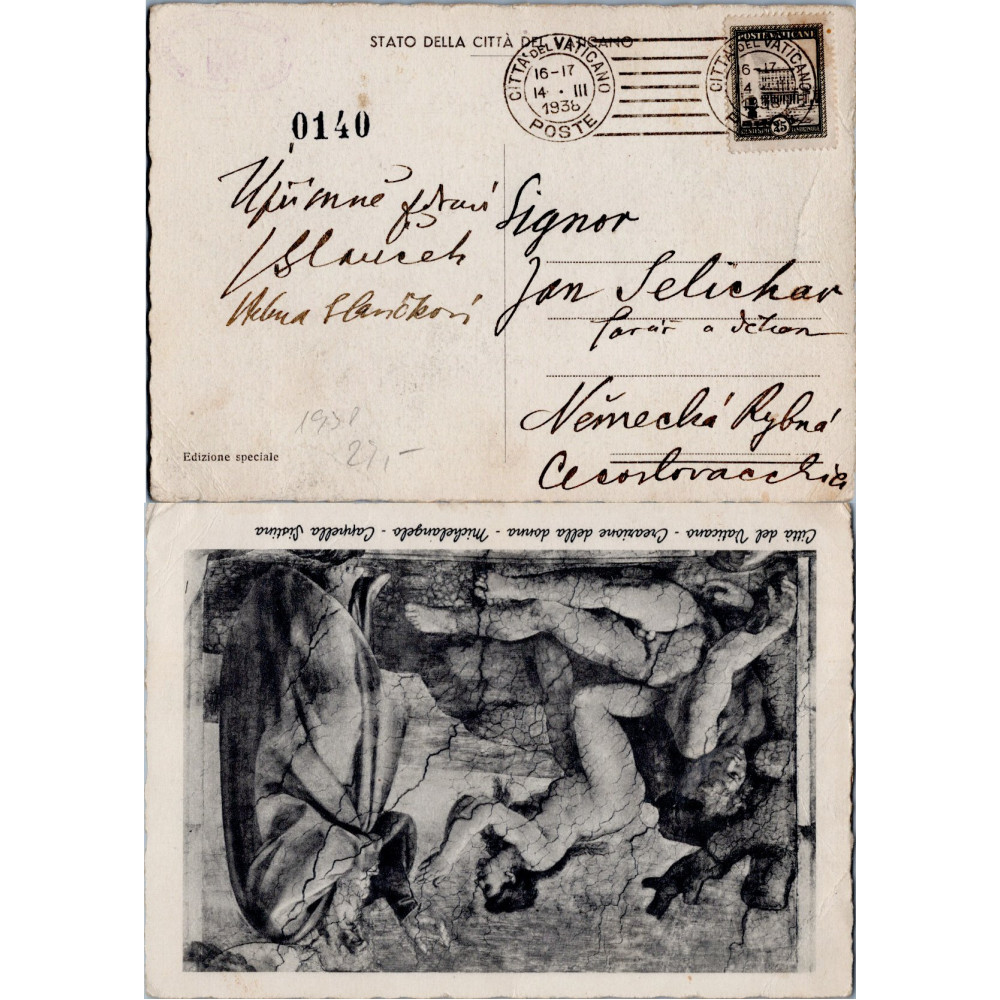 STATO DELLA CITTÀ DEL VATICANO
CITTA' DEL VATICANO
16-17
14 · III
1938
POSTE
CITTA' DEL VATICANO
POSTE VATICANE
25
0140
Upřímně zdraví
Slavíček
Slavíčková
Signor
Jan Selichar
farář a děkan
Německá Rybná
Cecoslovacchia
1938
27,-
Edizione speciale
Città del Vaticano - Creazione della donna - Michelangelo - Cappella Sistina